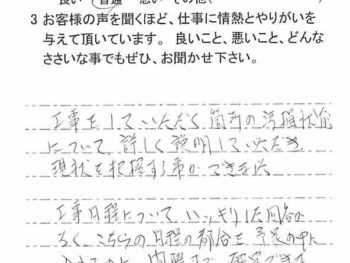 良い 普通 悪い その他(
3 お客様の声を聞くほど、仕事に情熱とやりがいを
与えて頂いています。 良いこと、悪いこと、どんな
ささいな事でもぜひ、お聞かせ下さい。
工事をしていただく箇所の
について、詳しく説明していただき
現状を把握する事ができました
工事日程について、はっきりした回答が
なく、こちらの日程の都合を